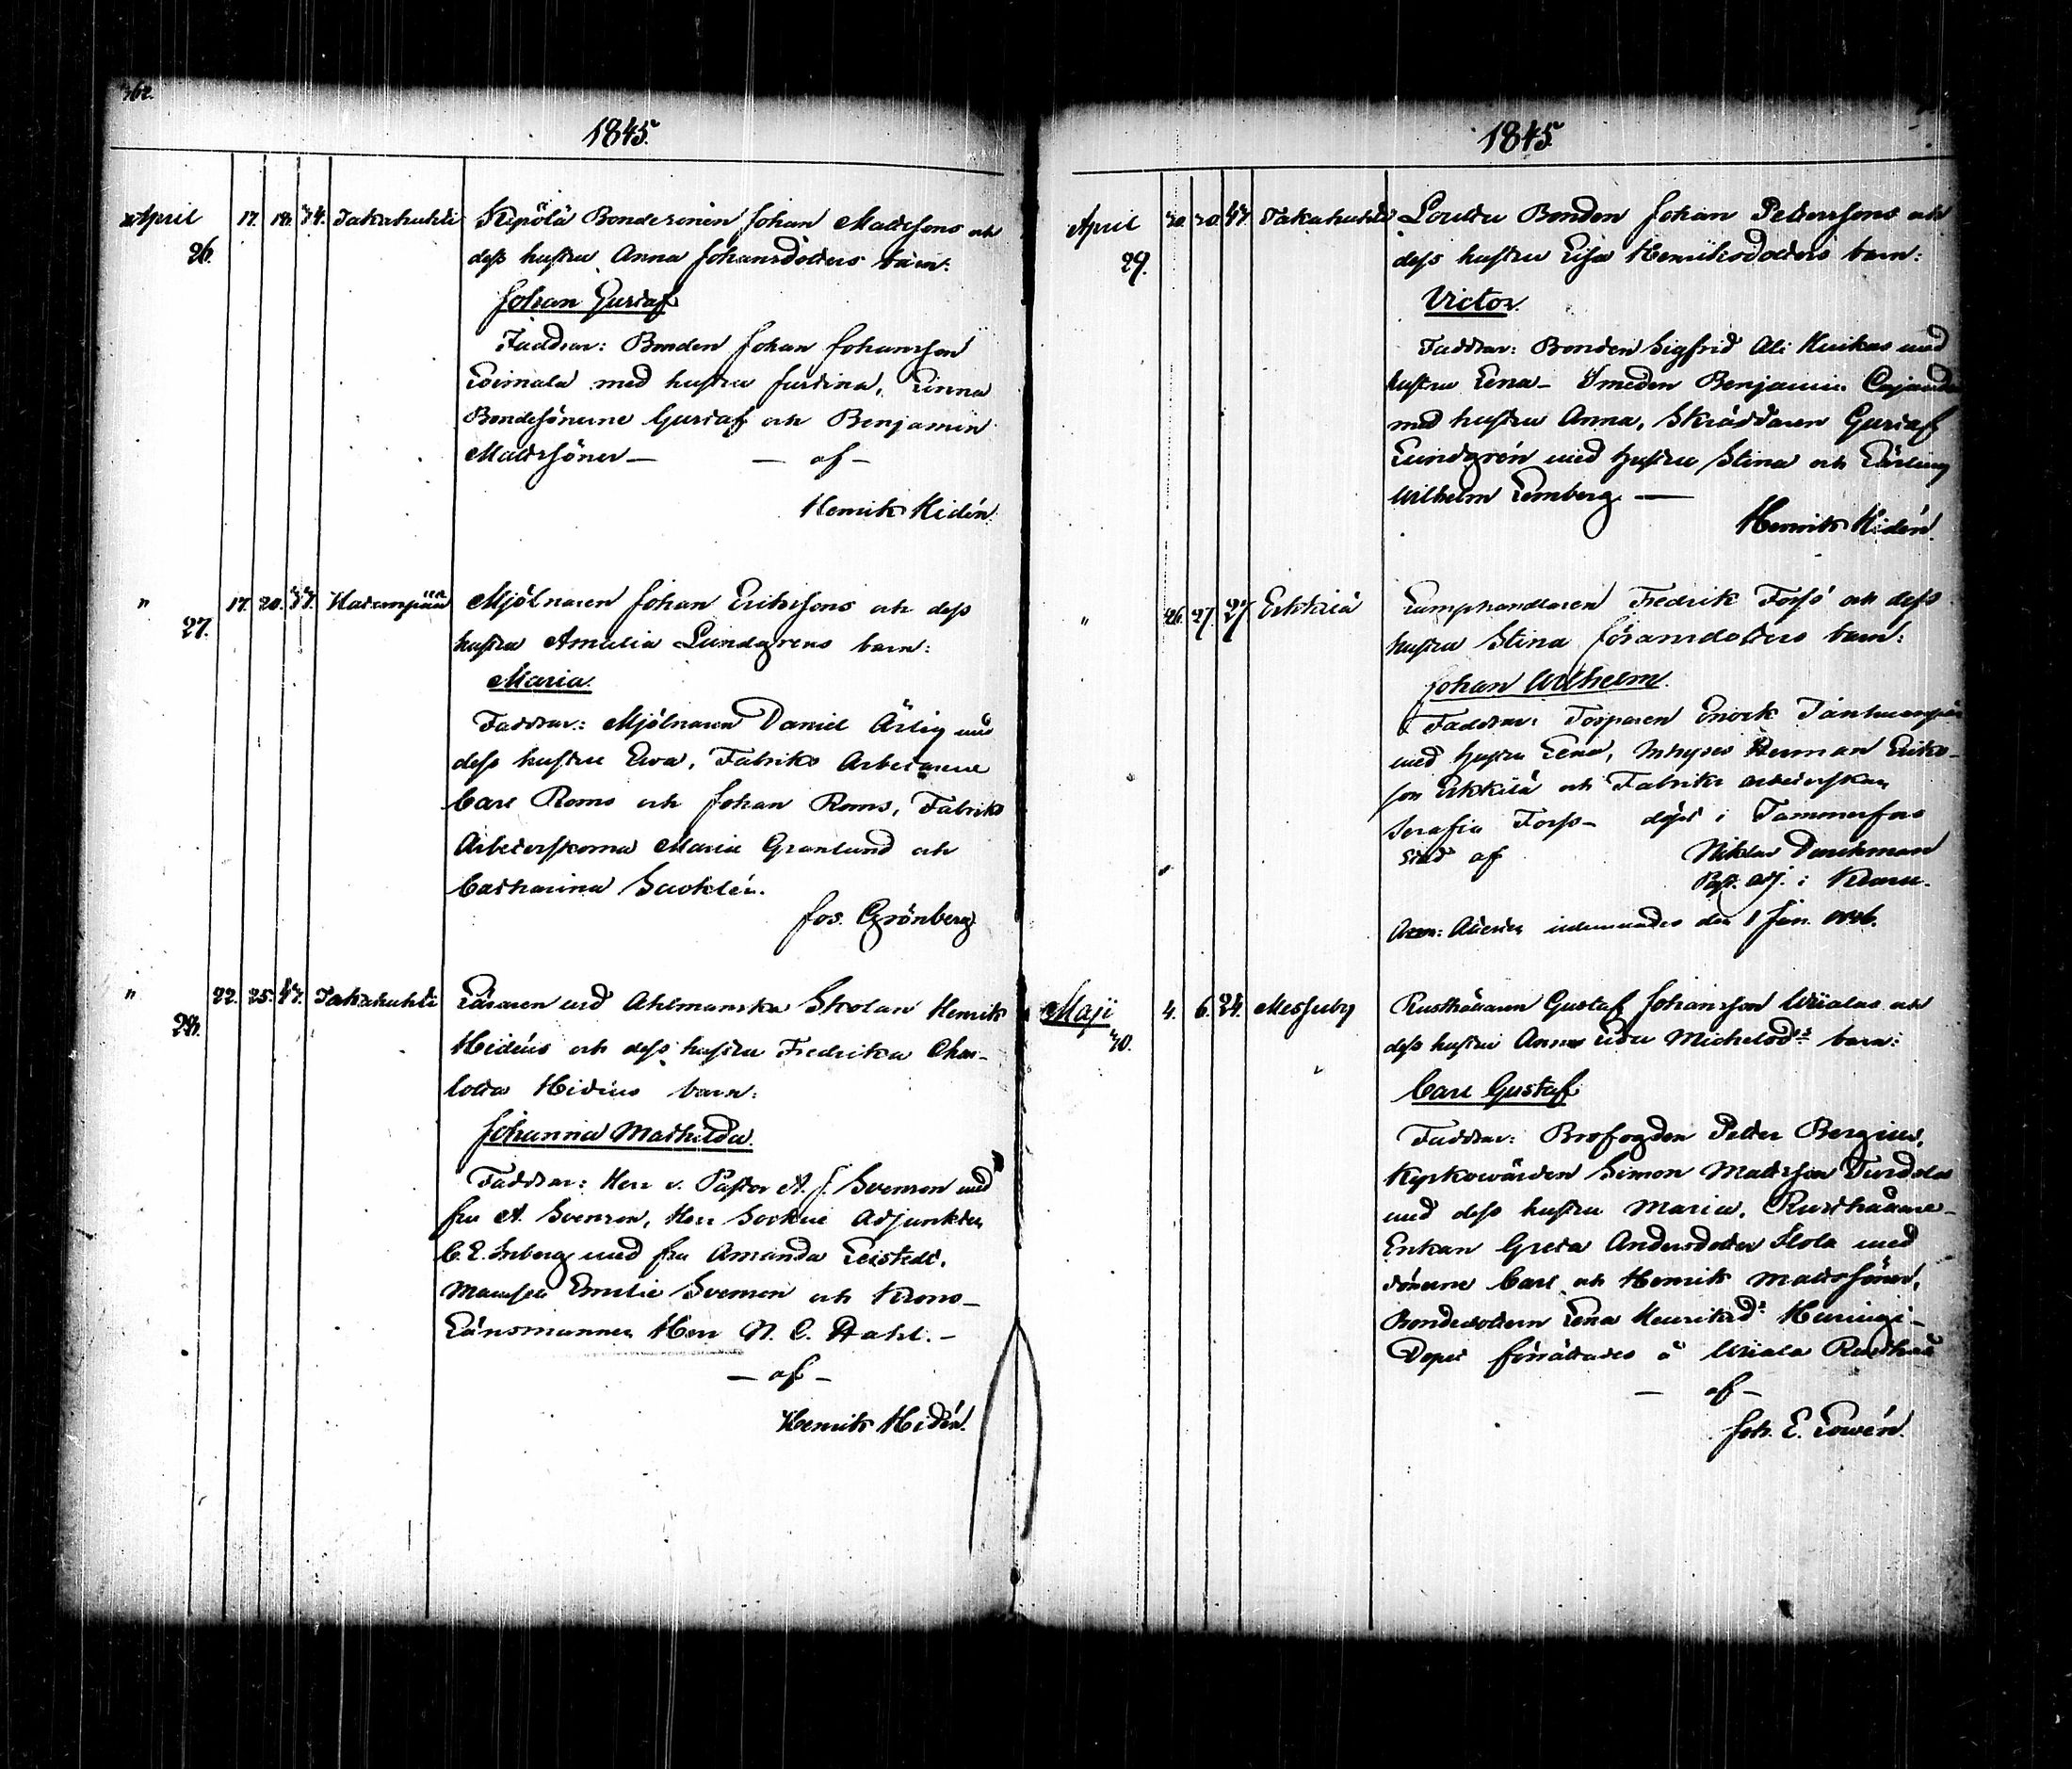 1845.
April 17. 18. 34. Takahuhti Stipölä Bondesonen Johan Mattssons och
26. dess hustru Anna Johansdotters barn:
Johan Gustaf
Faddrar: Bonden Johan Johansson
Toimala med hustru Justina, Linna
Bondesönerne Gustaf och Benjamin
Mattssöner — — af —
Henrik Hidén.
" 17. 20. 37. Hatanpää Mjölnaren Johan Erikssons och dess
27. hustru Amalia Lundgrens barn:
Maria.
Faddrar: Mjölnaren Daniel Ärlig med
dess hustru Ewa, Fabriks Arbetarne
Carl Roms och Johan Roms, Fabriks
Arbeterskorna Maria Granlund och
Catharina Sacklén.
Jos. Grönberg
" 22. 25. 37. Takahuhti Läraren wid Ahlmanska Skolan Henrik
28. Hidéns och dess hustru Fredrika Char-
lotta Hidéns barn:
Johanna Mathilda.
Faddrar: Herr v. Pastor A. J. Svenson med
fru A. Svenson, Herr Sockne Adjunkten
C. E. Inberg med fru Amanda Leistedt,
Mamsell Emelie Svenson och Krono-
Länsmannen Herr N. C. Dahl. —
— af —
Henrik Hidén.
1845.
April 20. 30. 37. Takahuhti Loultu Bonden Johan Pettersons och
29. dess hustru Lisa Henriksdotters barn:
Victor.
Faddrar: Bonden Sigfrid Ali Huikas med
hustru Lena — Smeden Benjamin Cajander
med hustru Anna, Skräddaren Gustaf
Lundgrén med hustru Stina och Lärling
Wilhelm Lemberg —
Henrik Hidén.
" 26. 27. 27. Erkkilä Lumphandlaren Fredrik Forss och dess
hustru Stina Göransdotters barn:
Johan Wilhelm.
Faddrar: Torparen Enock
med hustru Lena, Inhyses Herman Eriks-
son Erkkilä och Fabriks arbeterskan
Serafia Forss — döpt i Tammerfors
Stad af Niklas Duschman
Past. adj. i
inlemnades den 1 Jan. 1846.
Maji 4. 6. 24. Messuby Rusthållaren Gustaf Johansson Wiialas och
30. dess hustru Anna Lisa Michelsd:s barn:
Carl Gustaf
Faddrar: Brofogden Petter Bergius,
Kyrkowärden Simon Mattsson Turdola
med dess hustru Maria, Rusthållare-
Enkan Greta Andersdotter Ilola med
sönerne Carl och Henrik Matssöner,
Bondedottern Lena Henriksd:r Heringi —
Dopet förrättades å Wiiala Rusthåll
— af —
Joh. E. Lowén.